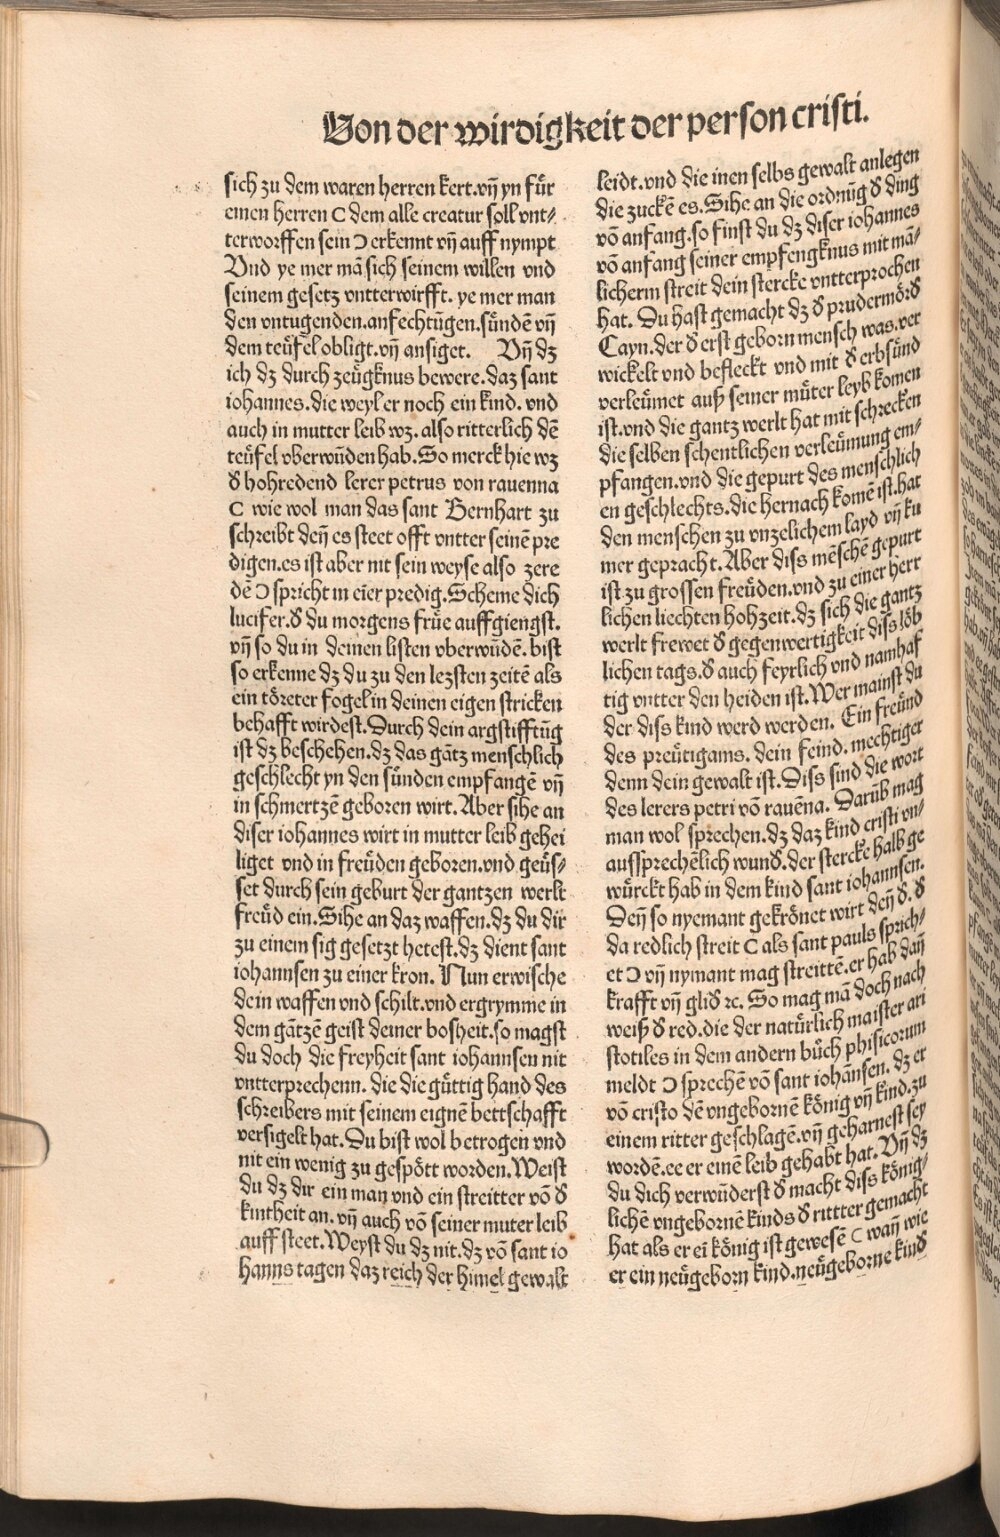 Von der wirdigkeit der person cristi.
sich zu dem waren herren kert.vñ yn für
einen herren C dem alle creatur soll vnt⸗
terworffen sein Ɔ erkennt vñ auff nympt
Vnd ye mer mā sich seinem willen vnd
seinem gesetz vntterwirfft. ye mer man
den vntugenden.anfechtūgen.sündē vñ
dem teüfel obligt.vñ ansiget. Vñ dz
ich dz durch zeügknus bewere.daz sant
iohannes.die weyl er noch ein kind. vnd
auch in mutter leib wz. also ritterlich dē
teüfel vberwūden hab.So merck hie wz
đ hohredend lerer petrus von rauenna
C wie wol man das sant Bernhart zu
schreibt deñ es steet offt vntter seinē pre
digen.es ist aber nit sein weyse also zere
dē Ɔ spricht in eīer predig.Scheme dich
lucifer.đ du morgens früe auffgiengst.
vñ so du in deinen listen vberwūdē. bist
so erkenne dz du zu den lezsten zeitē als
ein töreter fogel in deinen eigen stricken
behafft wirdest.Durch dein argstifftūg
ist dz beschehen.dz das gātz menschlich
geschlecht yn den sünden empfangē vñ
in schmertzē geboren wirt.Aber sihe an
diser iohannes wirt in mutter leib gehei
liget vnd in freüden geboren.vnd geüs⸗
set durch sein geburt der gantzen werlt
freüd ein.Sihe an daz waffen.dz du dir
zu einem sig gesetzt hetest.dz dient sant
iohannsen zu einer kron. Nun erwische
dein waffen vnd schilt.vnd ergrymme in
dem gātzē geist deiner bosheit.so magst
du doch die freyheit sant iohannsen nit
vntterprechenn. die die gūttig hand des
schreibers mit seinem eignē bettschafft
versigelt hat.Du bist wol betrogen vnd
nit ein wenig zu gespött worden.Weist
du dz dir ein man vnd ein streitter vō đ
kintheit an. vñ auch vō seiner muter leib
auff steet.Weyst du dz nit.dz vō sant io
hanns tagen daz reich der himel gewalt
leidt.vnd die inen selbs gewalt anlegen
die zuckē es.Sihe an die ordnūg đ ding
vō anfang.so finst du dz diser iohannes
vō anfang seiner empfengknus mit mā⸗
licherm streit dein stercke vntterprochen
hat. Du hast gemacht dz đ prudermörđ
Cayn.der đ erst geborn mensch was.ver
wickelt vnd befleckt vnd mit đ erbsünd
verleümet auß seiner müter leyb komen
ist.vnd die gantz werlt hat mit schrecken
die selben schentlichen verleümung em⸗
pfangen.vnd die gepurt des menschlich
en geschlechts.die hernach komē ist.hat
den menschen zu vnzelichem layd vñ ku
mer gepracht.Aber diss mēschē gepurt
ist zu grossen freüden.vnd zu einer herr
lichen liechten hohzeit.dz sich die gantz
werlt frewet đ gegenwertigkeit diss löb
lichen tags.đ auch feyrlich vnd namhaf
tig vntter den heiden ist.Wer mainst du
der diss kind werd werden. Ein freünd
des preütigams. dein feind. mechtiger
denn dein gewalt ist.Diss sind die wort
des lerers petri vō rauēna. Darūb mag
man wol sprechen.dz daz kind cristi vn⸗
aussprechēlich wunđ.der stercke halb ge
würckt hab in dem kind sant iohannsen.
Deñ so nyemant gekrönet wirt deñ đ. đ
da redlich streit C als sant pauls sprich⸗
et Ɔ vñ nymant mag streittē.er hab dañ
krafft vñ gliđ ꝛc. So mag mā doch nach
weiß đ red.die der natürlich maister ari
stotiles in dem andern büch phisicorum
meldt Ɔ sprechē vō sant iohānsen. dz er
vō cristo dē vngebornē könig vñ kind.zu
einem ritter geschlagē.vñ geharnest sey
wordē.ee er einē leib gehabt hat. Vñ dz
du dich verwūderst đ macht diss könig⸗
lichē vngebornē kinds đ rittter gemacht
hat als er eī könig ist gewesē C wañ wie
er ein neügeborn kind.neügeborne kinđ